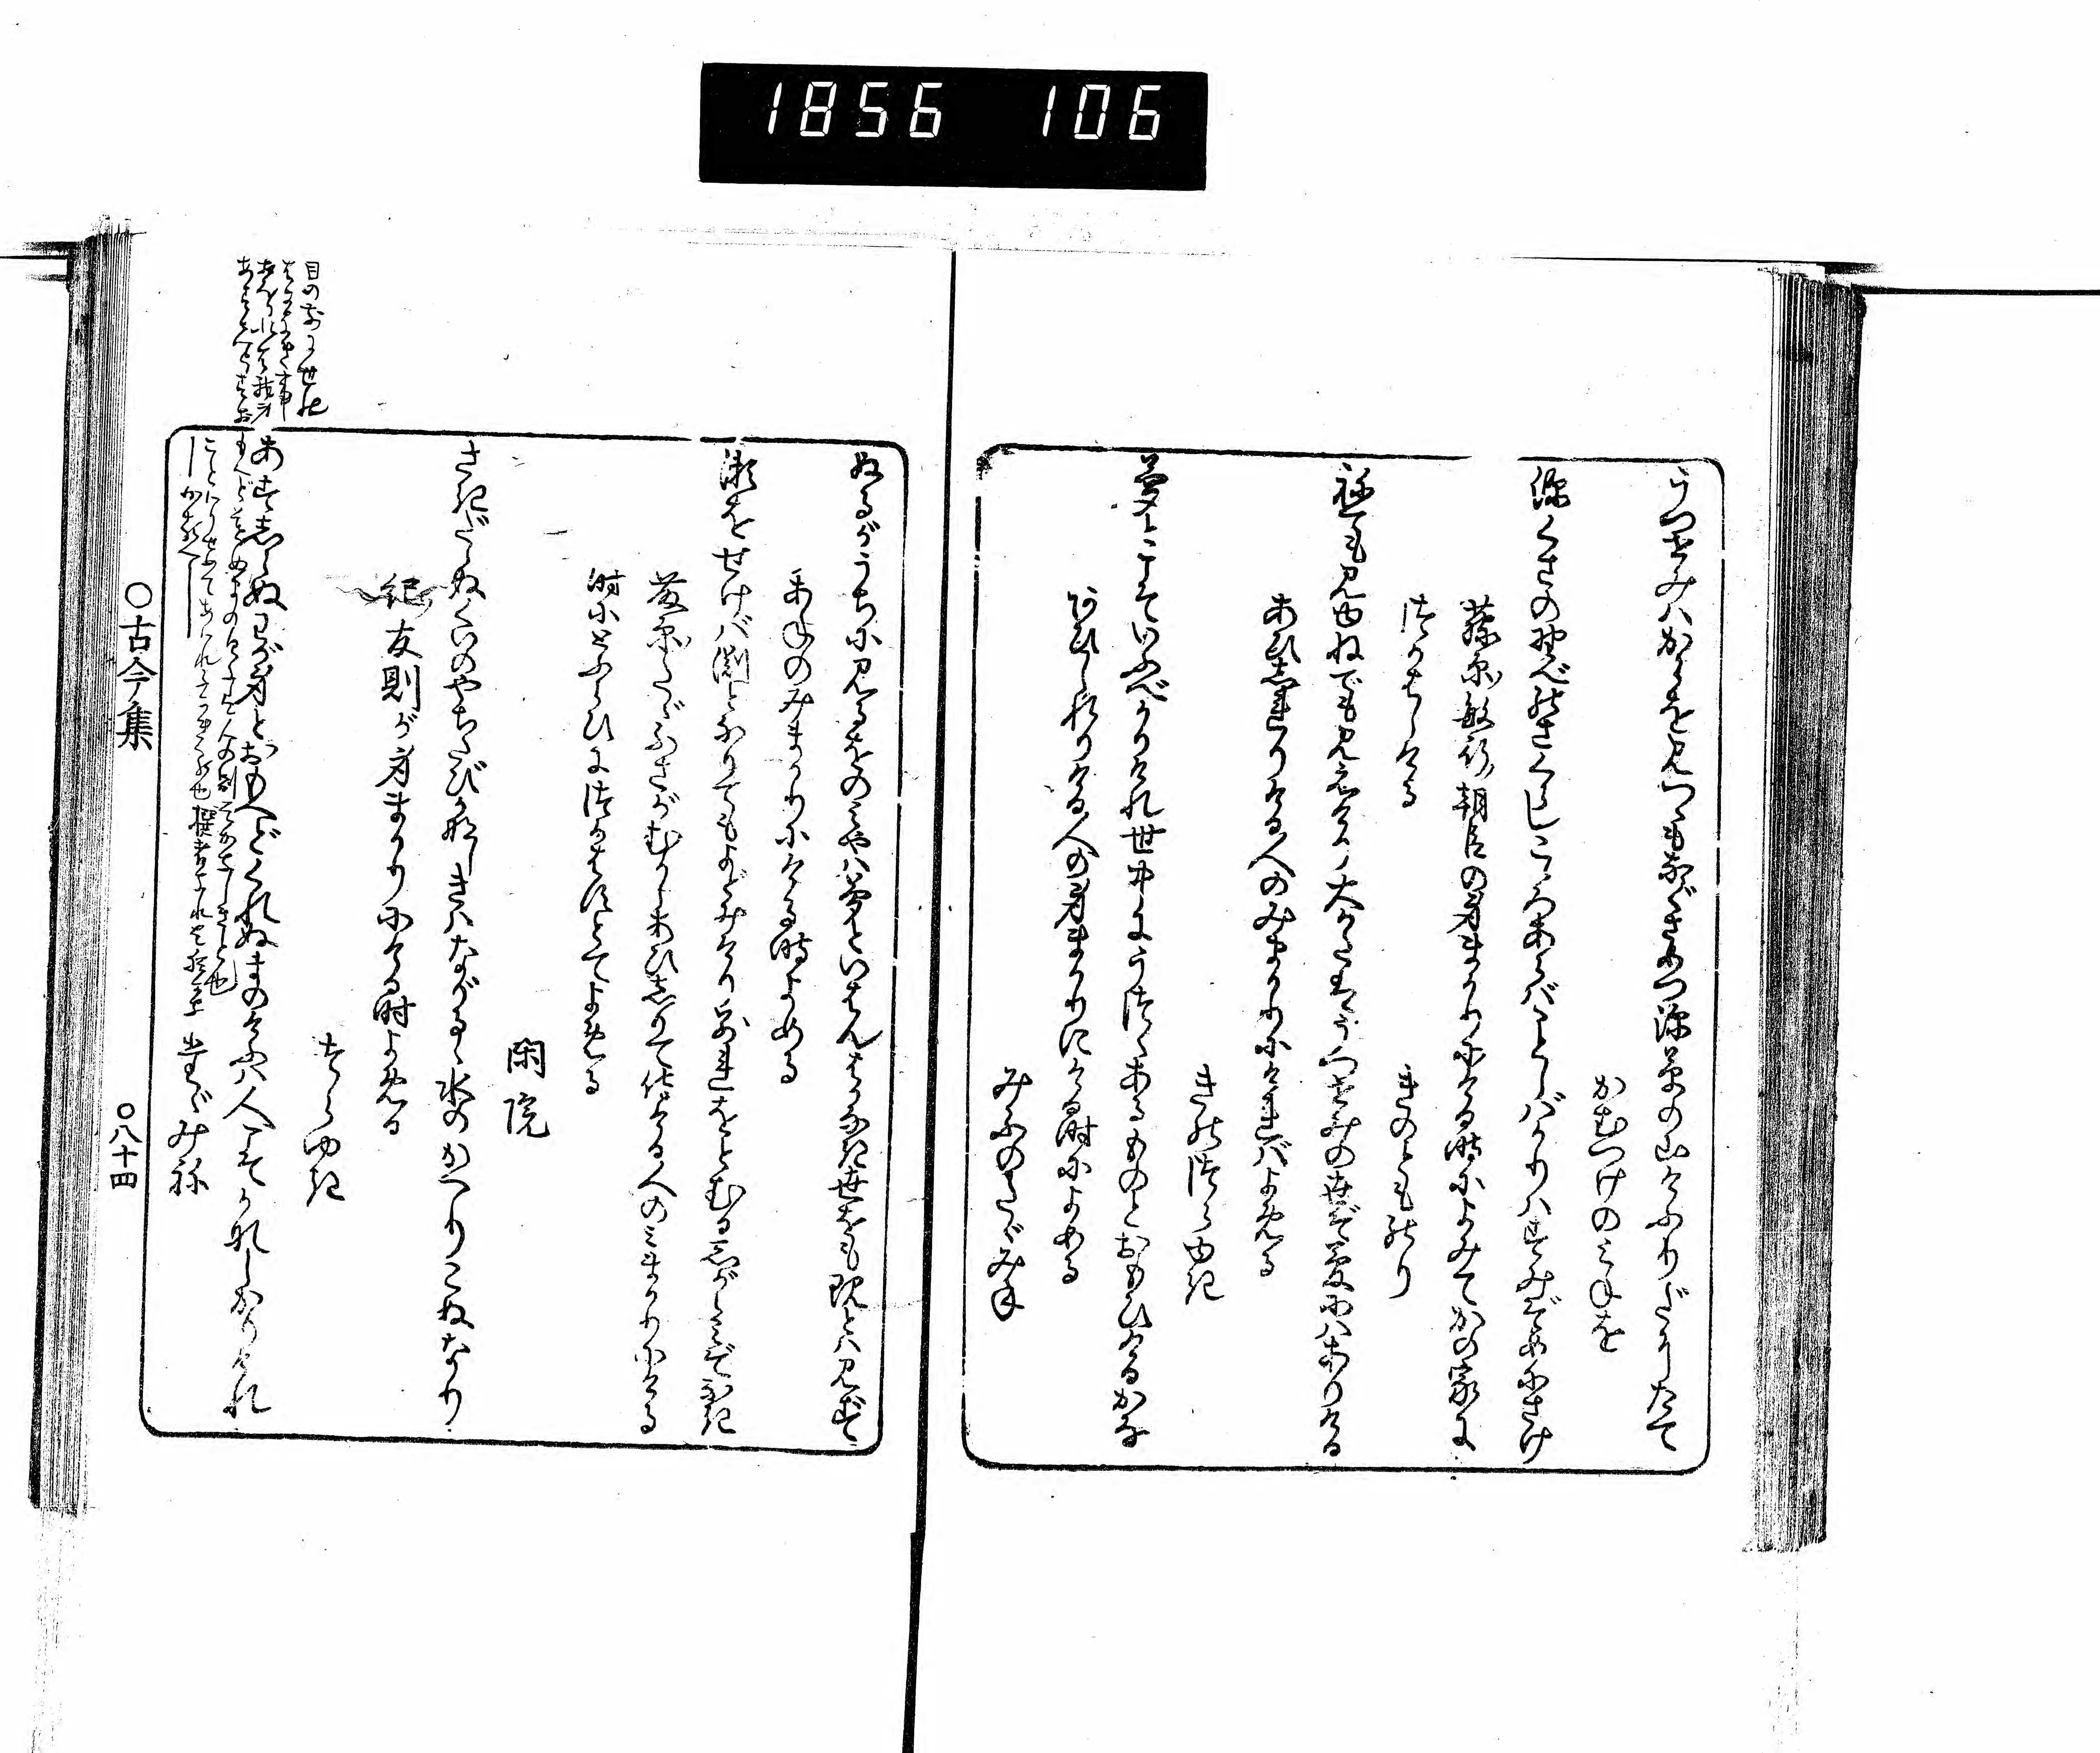 1856 106
うつせみハからを見つゝもなぐさめつ深草の山けふりだにたて
かむつけのみねを
深くさの野べのさくらしこゝろあらバことしバかりハすみぞめにさけ
藤原敏行朝臣の身まかりにける時によみてかの家に
つかはしける
きのとものり
祢ても見ゆねでも見えけり大かたはうつせみの世ぞ夢にハありける
あひしれりける人のみまかりにけれバよめる
きのつらゆき
夢とこそいふべかりけれ世中にうつゝあるものとおもひけるかな
あひしれりける人の身まかりにける時によめる
みぶのたゞみね
ぬるがうちに見るをのみやハ夢といはんはかなき世をも現とハ見ず
あねのみまかりにける時よめる
瀬をせけバ淵となりてもよどみけりわかれをとむるしがらみぞなき
藤原たゞふさがむかしあひしりて侍ける人のみまかりにける
時にとふらひにつかはすとてよめる
閑院
さきだゝぬくいのやちたびかなしきハながるゝ水のかへりこぬなり
紀友則が身まかりにける時よめる
つらゆき
あすしらぬわが身とおもへどくれぬまのけふハ人こそかなしかりけれ
たゞみね
目の前に世の
○古今集
○八十四